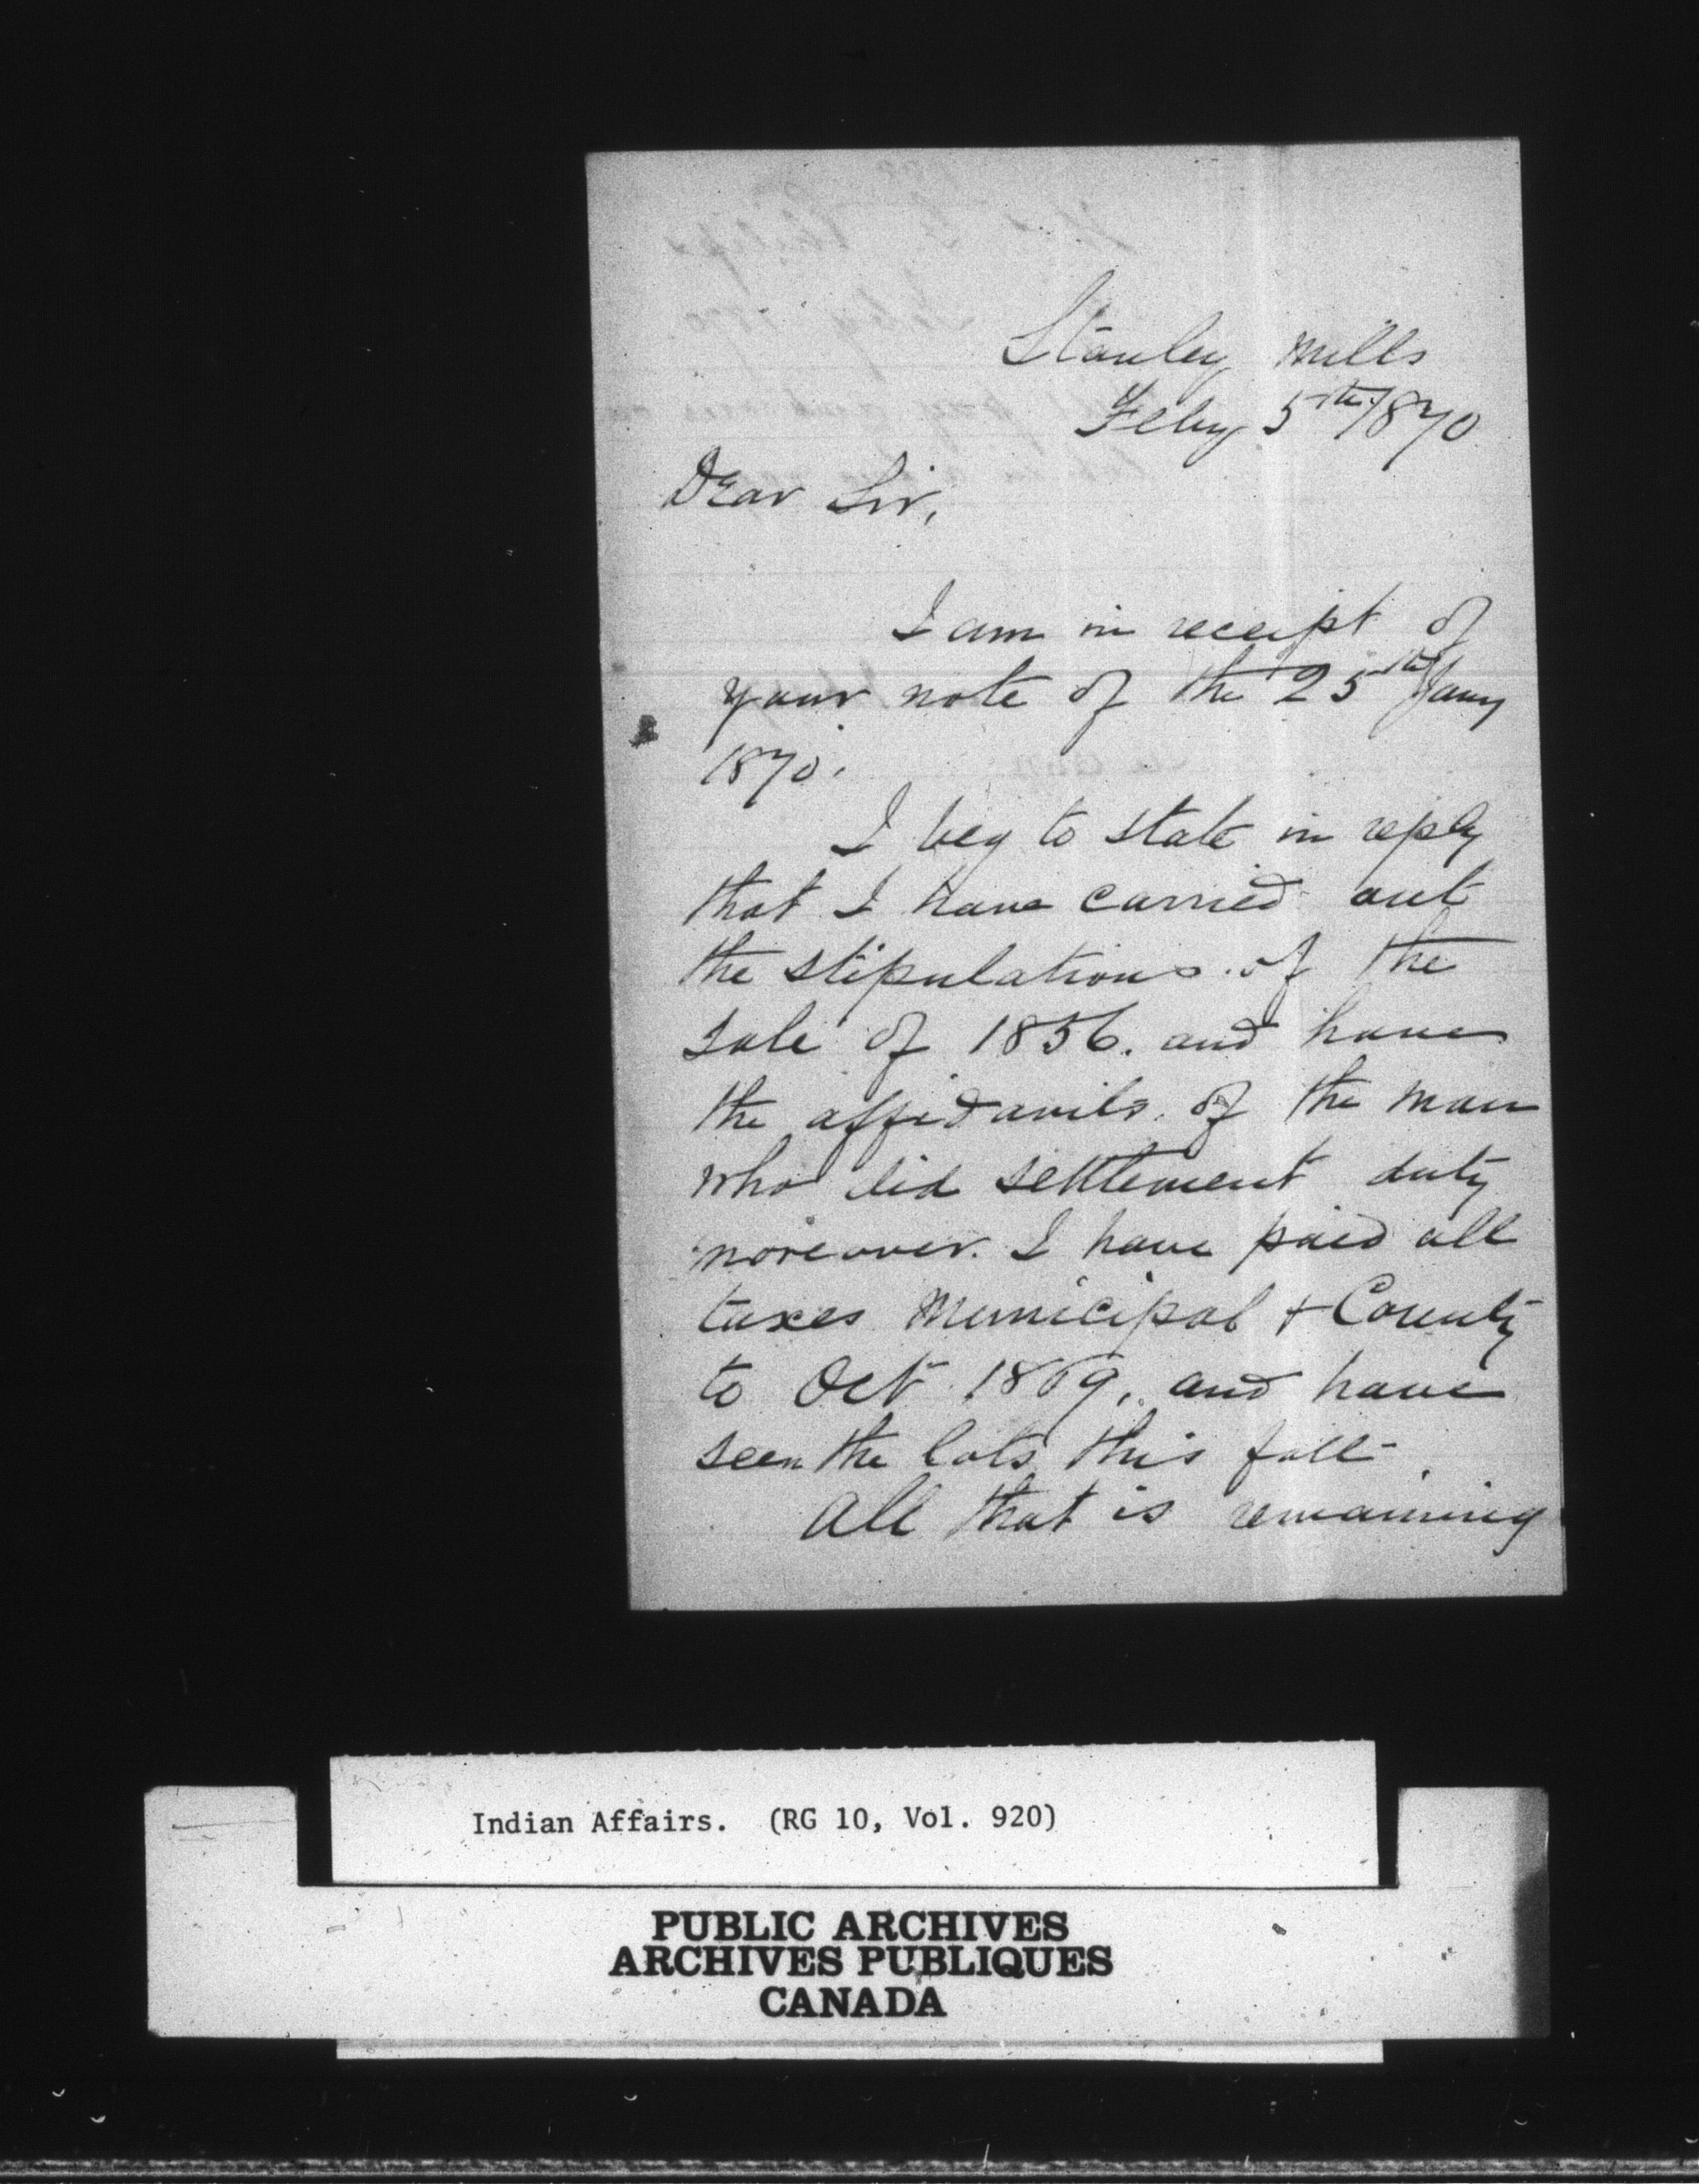 Stanley Mills
Feby 5th 1870
Dear Sir,
I am in receipt of
your note of the 25th Jany
1870.
I beg to state in reply
that I have carried out
the stipulations of the
sale of 1856. and have
the affidavits of the man
who did settlement duty
moreover. I have paid all
taxes Municipal & County
to Oct 1869, and have
seen the lots this fall
All that is remaining
Indian Affairs. (RG 10, Vol. 920)
PUBLIC ARCHIVES
ARCHIVES PUBLIQUES
CANADA